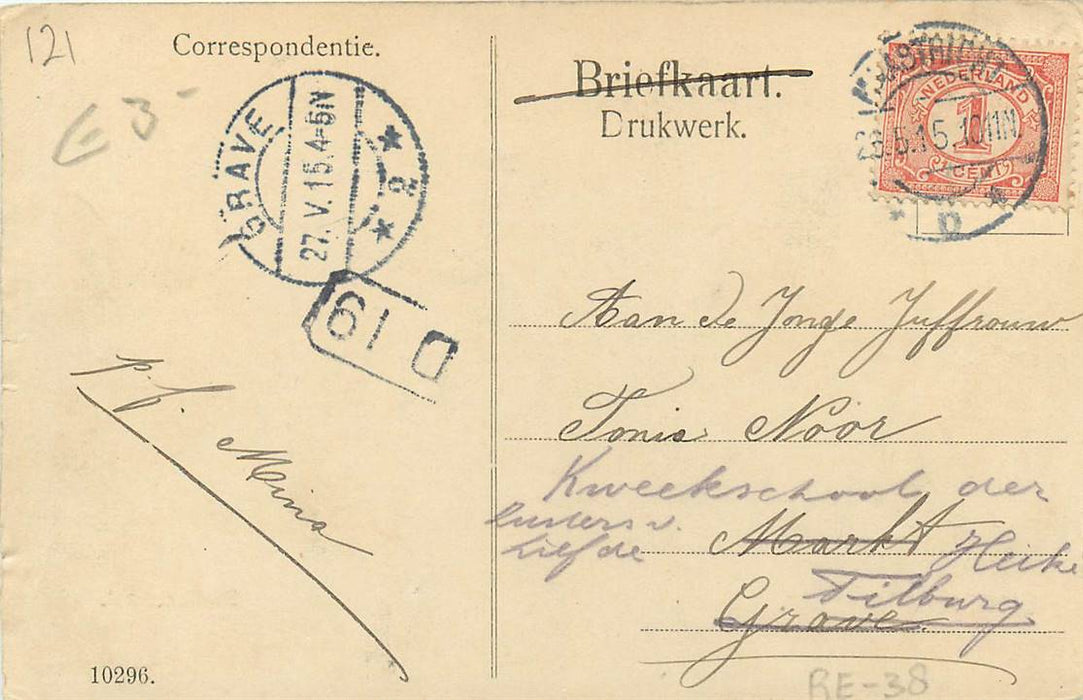 121
Correspondentie.
E 3-
GRAVE
27.V.15.4-5N
* 2 *
D 19
p.f. Mina
10296.
Briefkaart.
Drukwerk.
MAASTRICHT
26.5.15.10-11N
* D *
NEDERLAND
1
CENT
Aan de Jonge Juffrouw
Tonia Noor
Kweekschool der
Zusters v.
Liefde
Markt Heike
Tilburg
Grave.
RE-38